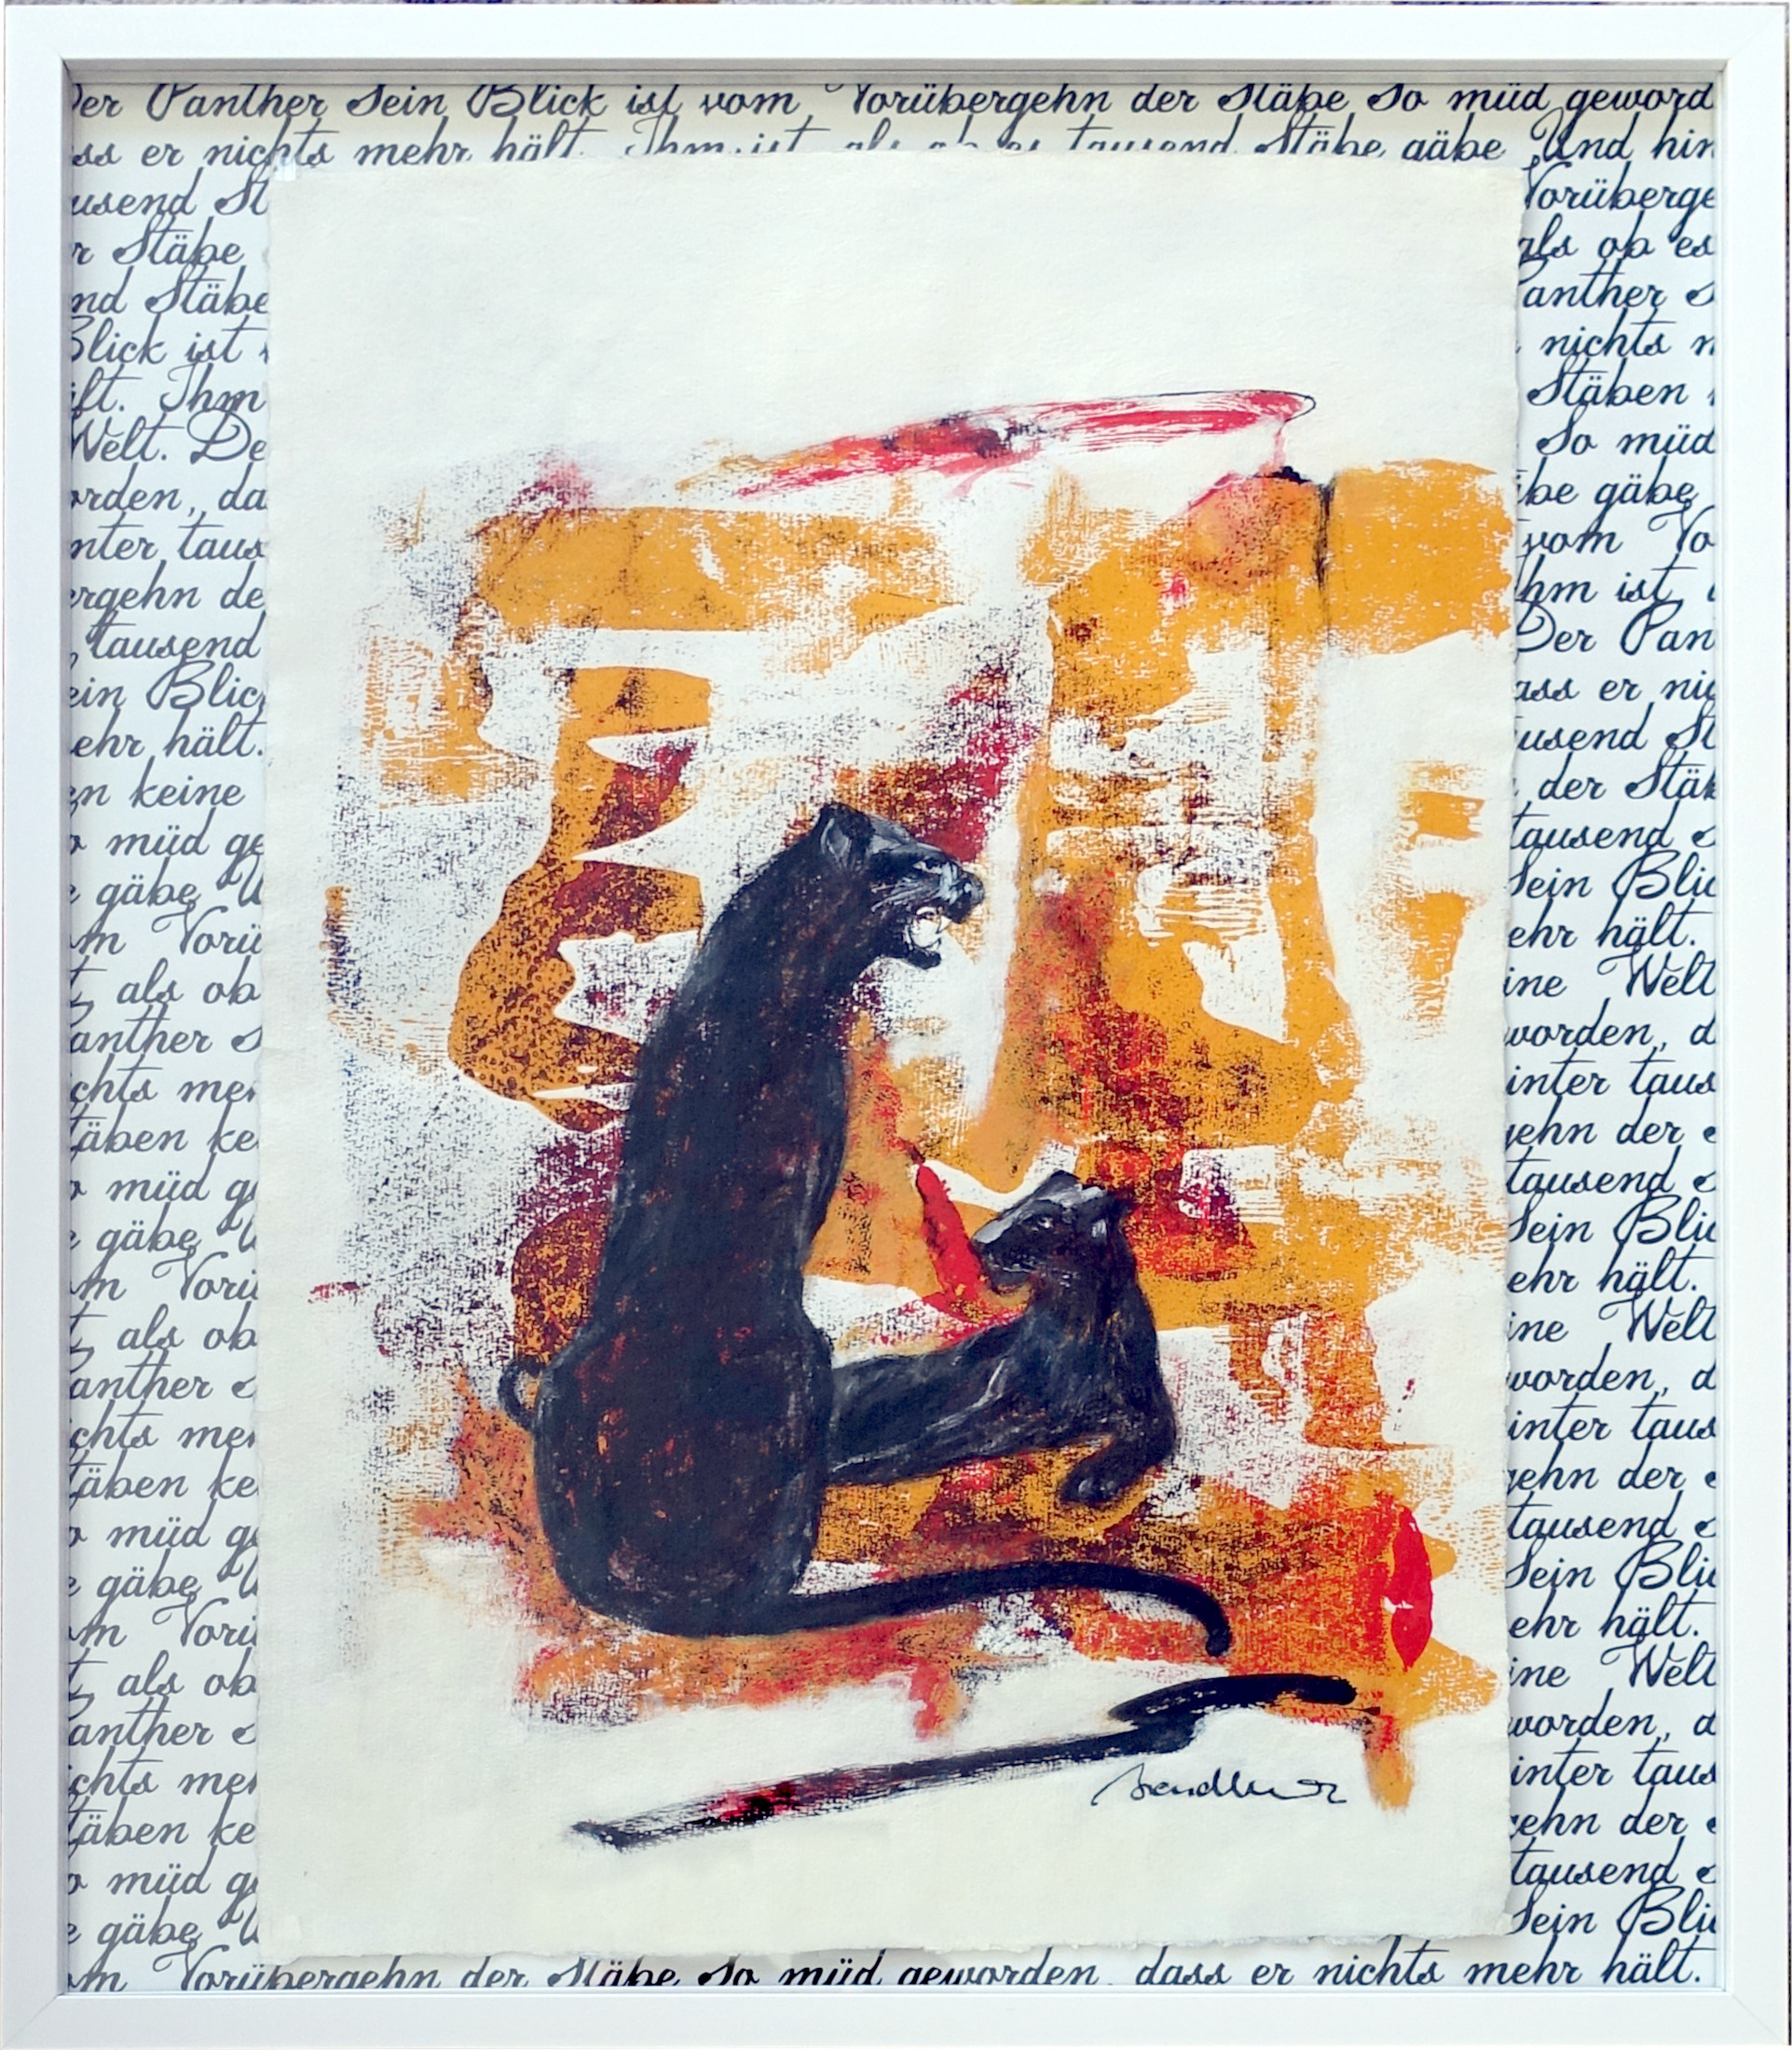 Der Panther Sein Blick ist vom Vorübergehn der Stäbe So müd geword
ss er nichts mehr hält. Ihm ist, als ob es tausend Stäbe gäbe Und hin
usend St Vorüberge
r Stäbe als ob es
nd Stäbe anther S
Blick ist nichts m
lt. Ihm Stäben
Welt. De So müd
orden, da äbe gäbe
nter taus vom Vo
ergehn de hm ist,
tausend Der Pan
ein Blick ass er nic
ehr hält. usend St
en keine der Stäb
o müd ge tausend S
e gäbe U Sein Blic
om Vorü ehr hält.
t, als ob ine Welt
anther S worden, d
chts meh inter taus
täben ke gehn der S
o müd ge tausend S
e gäbe U Sein Blic
om Vorü ehr hält.
t, als ob ine Welt
anther S worden, d
chts meh inter taus
täben ke gehn der S
o müd ge tausend S
e gäbe U Sein Blic
om Vorü ehr hält.
t, als ob ine Welt
anther S worden, d
chts meh inter taus
täben ke gehn der S
o müd ge tausend S
e gäbe U Sein Blic
om Vorübergehn der Stäbe So müd geworden, dass er nichts mehr hält.